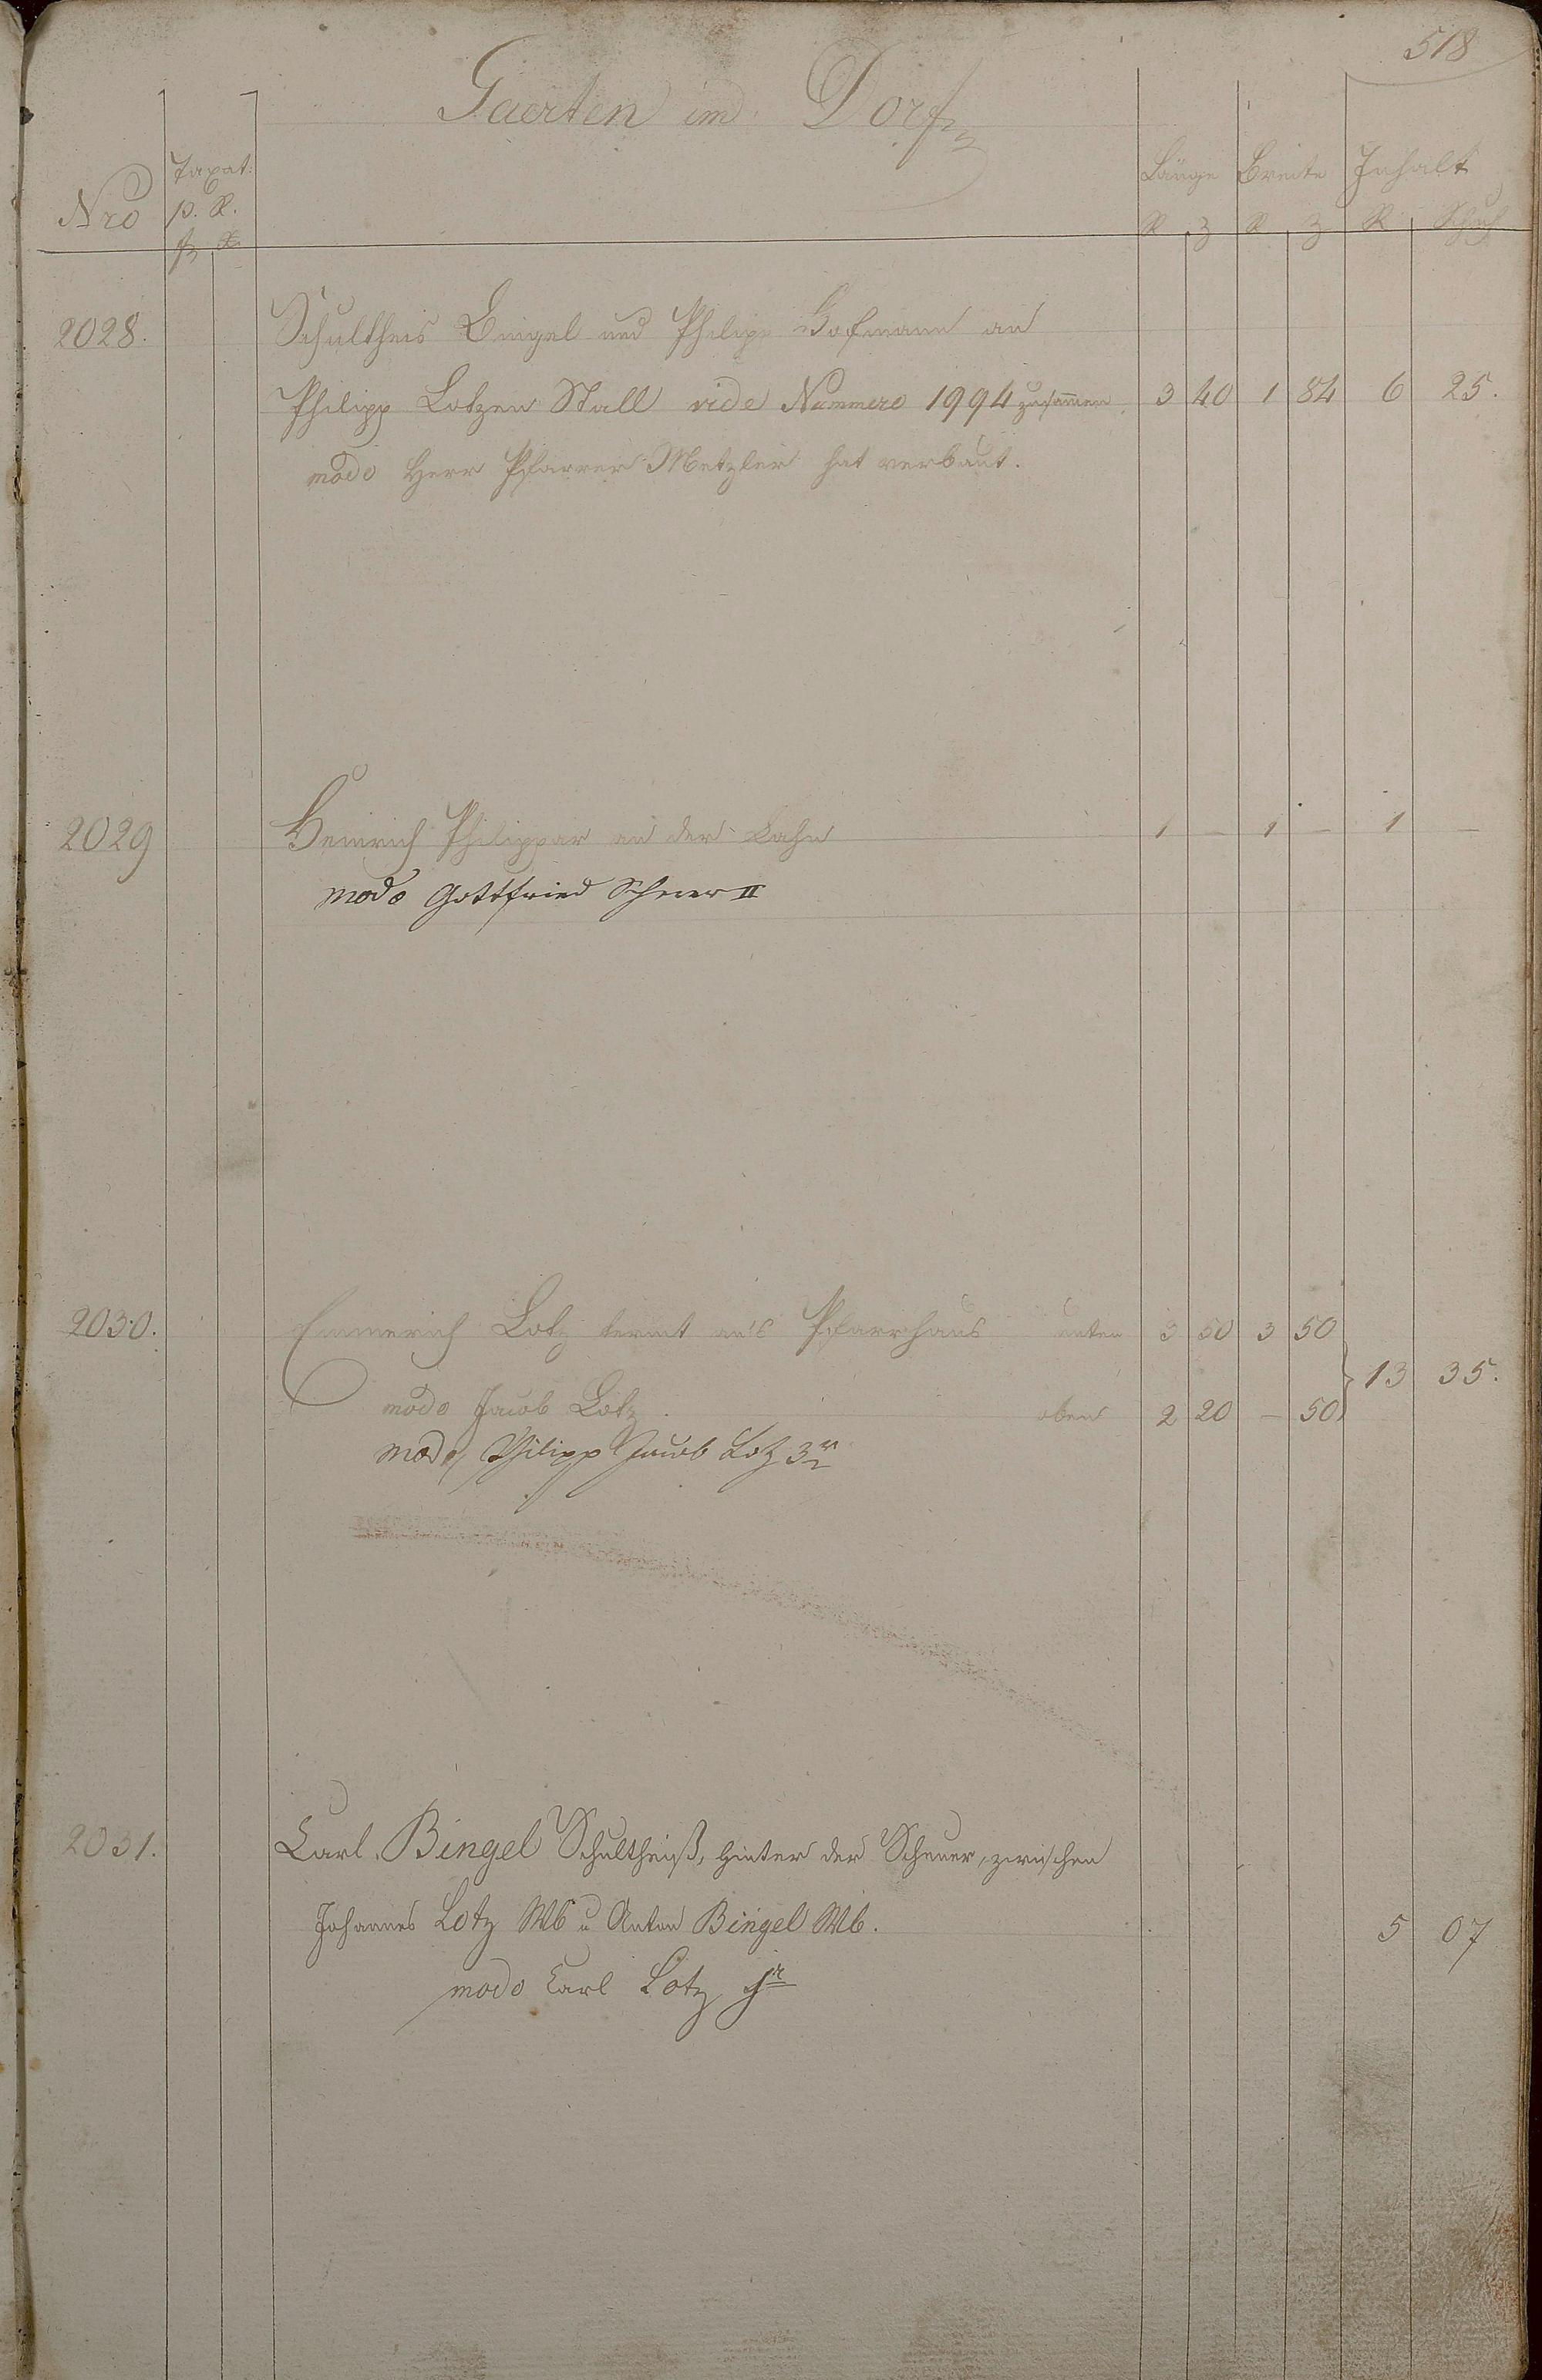 518
Gaerten im Dorf
Nro Taxat: p. R. Länge Breite Inhalt
fl x R Z R Z R Schuh
2028. Schultheis Bingel und Philipp Hofmann an
Philipp Lotzen Stall vide Nummero 1994 zusammen 3 40 1 84 6 25.
modo Herr Pfarrer Metzler hat verbaut.
2029 Heinrich Philippar an der Lahn 1 — 1 — 1 —
modo Gottfried II
2030. Emmerich Lotz an's Pfarrhaus unten 3 50 3 50
13 35.
modo Jacob Lotz oben 2 20 — 50
modo Philipp Jacob Lotz 3r
2031. Carl Bingel Schultheiß, hinter der Scheuer, zwischen
Johannes Lotz Wb u Anton Bingel Wb. 5 07
modo Carl Lotz jr